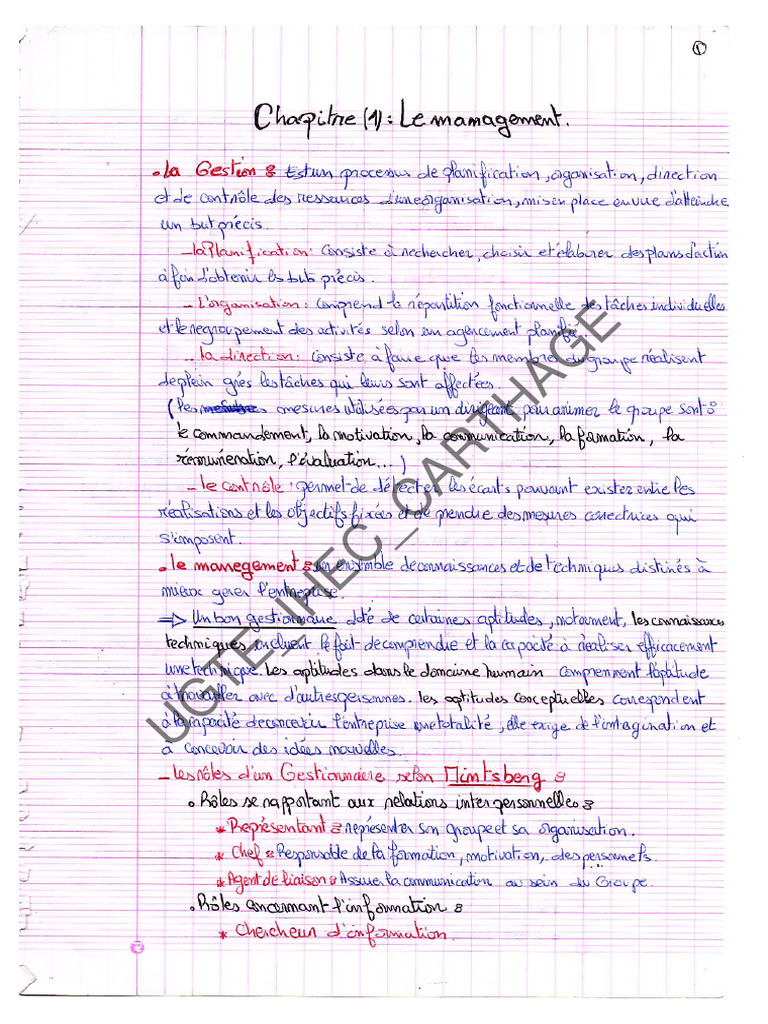 1
Chapitre (1) : Le management.
• La Gestion : Est un processus de planification, organisation, direction
et de contrôle des ressources d'une organisation, mis en place en vue d'atteindre
un but précis.
– la Planification : Consiste à rechercher, choisir et élaborer des plans d'action
à fin d'obtenir les buts précis.
– L'organisation : comprend la répartition fonctionnelle des tâches individuelles
et le regroupement des activités selon un agencement planifié.
– la direction : Consiste à faire que les membres du groupe réalisent
de plein grés les tâches qui leurs sont affectées.
(les mesures utilisées par un dirigeant pour animer le groupe sont :
le commandement, la motivation, la communication, la formation, la
rémunération, l'évaluation...)
– le contrôle : permet de détecter les écarts pouvant exister entre les
réalisations et les objectifs fixées et de prendre des mesures correctrices qui
s'imposent.
• le manegement : un ensemble de connaissances et de techniques distinés à
mieux gérer l'entreprise.
⇒ Un bon gestionnaire doté de certaines aptitudes, notamment, les connaissances
techniques incluent le fait de comprendre et la capacité à réaliser efficacement
une technique. Les aptitudes dans le domaine humain comprennent l'aptitude
à travailler avec d'autres personnes. les aptitudes conceptuelles correspondent
à la capacité de concevoir l'entreprise une totalité, elle exige de l'imagination et
à concevoir des idées nouvelles.
– les rôles d'un Gestionnaire selon Mintsberg :
• Rôles se rapportant aux relations interpersonnelles :
* Représentant : représenter son groupe et sa organisation.
* Chef : Responsable de la formation, motivation, des personnels.
* Agent de liaison : Assure la communication au sein du Groupe.
• Rôles concernant l'information :
* Chercheur d'information
UGTE_IHEC_CARTHAGE